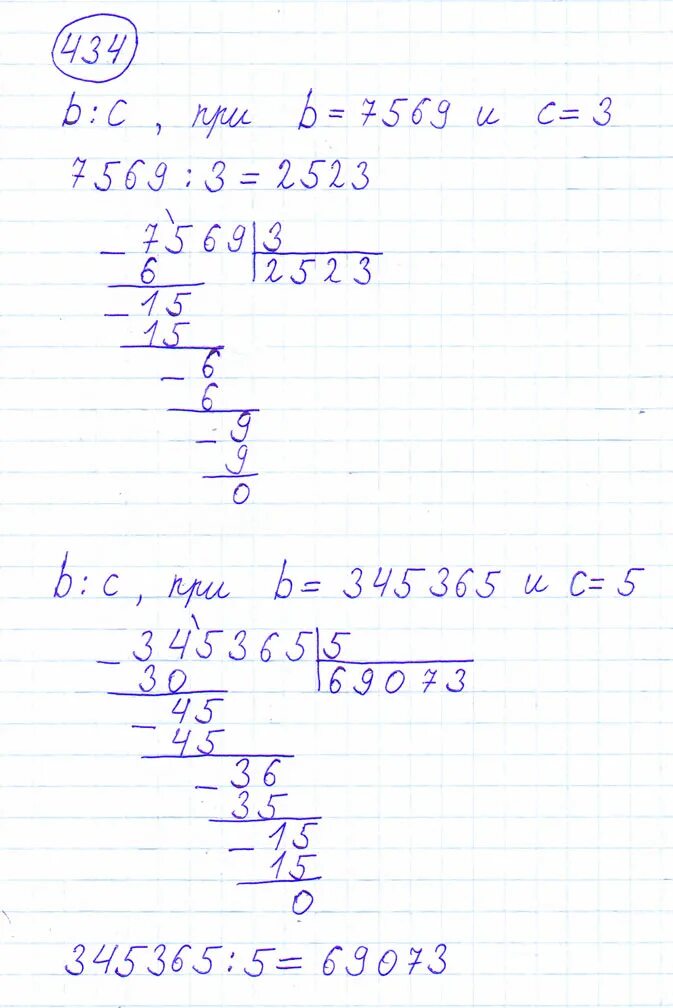 434
b:c, при b=7569 и c=3
7569:3=2523
- 7569 | 3
6 | 2523
- 15
15
- 6
6
- 9
9
0
b:c, при b=345365 и c=5
- 345365 | 5
30 | 69073
- 45
45
- 36
35
- 15
15
0
345365:5=69073